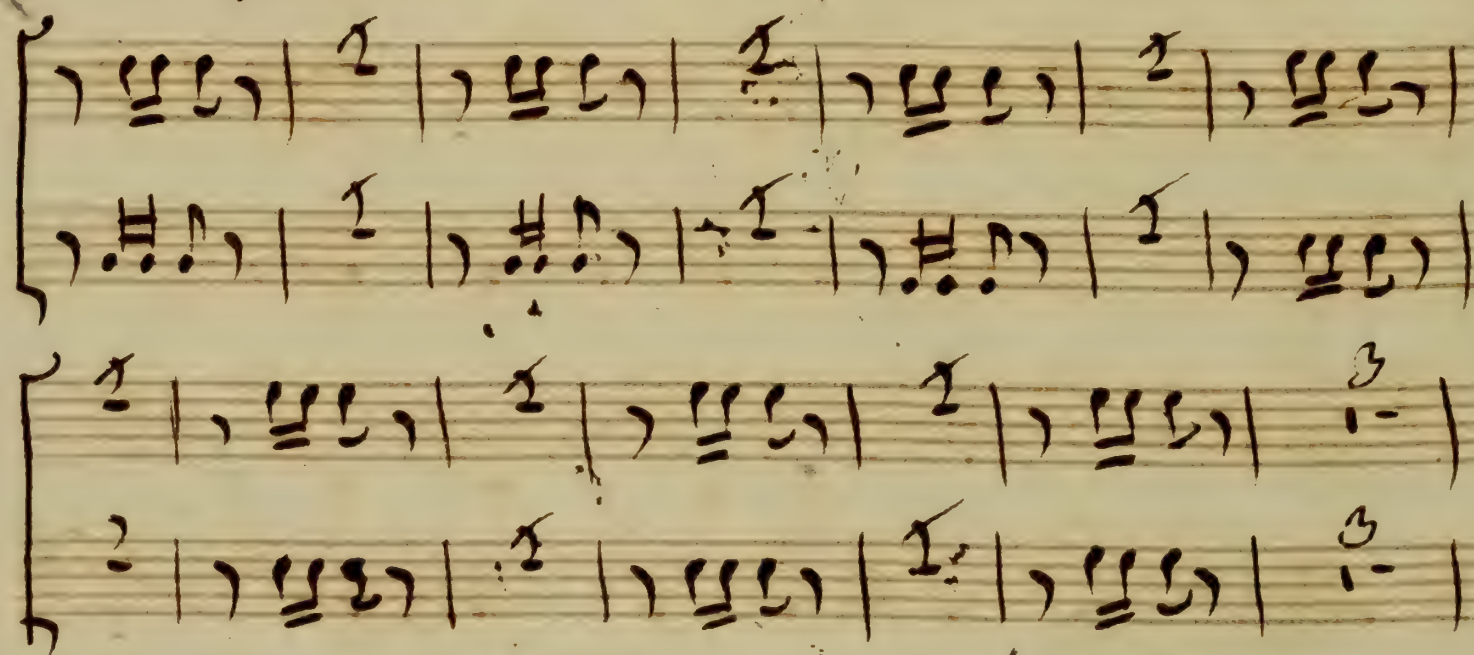 1 1 1
1 1 1
1 1 1 3
1 1 1 3